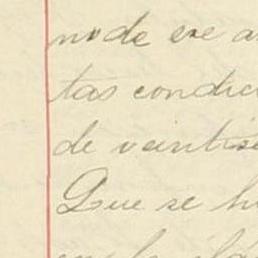 node ese a
tas condic
de veintis
Que se h